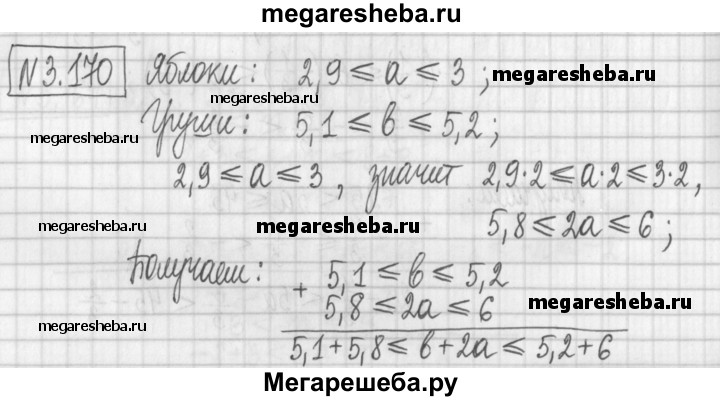 megaresheba.ru
N3.170 Яблоки: 2,9 ≤ a ≤ 3 ; megaresheba.ru
megaresheba.ru
megaresheba.ru Груши: 5,1 ≤ в ≤ 5,2 ;
2,9 ≤ a ≤ 3 , значит 2,9·2 ≤ a·2 ≤ 3·2,
megaresheba.ru megaresheba.ru 5,8 ≤ 2a ≤ 6 ;
Получаем: + 5,1 ≤ в ≤ 5,2
5,8 ≤ 2a ≤ 6 megaresheba.ru
megaresheba.ru
5,1+5,8 ≤ в+2a ≤ 5,2+6
Мегарешеба.ру